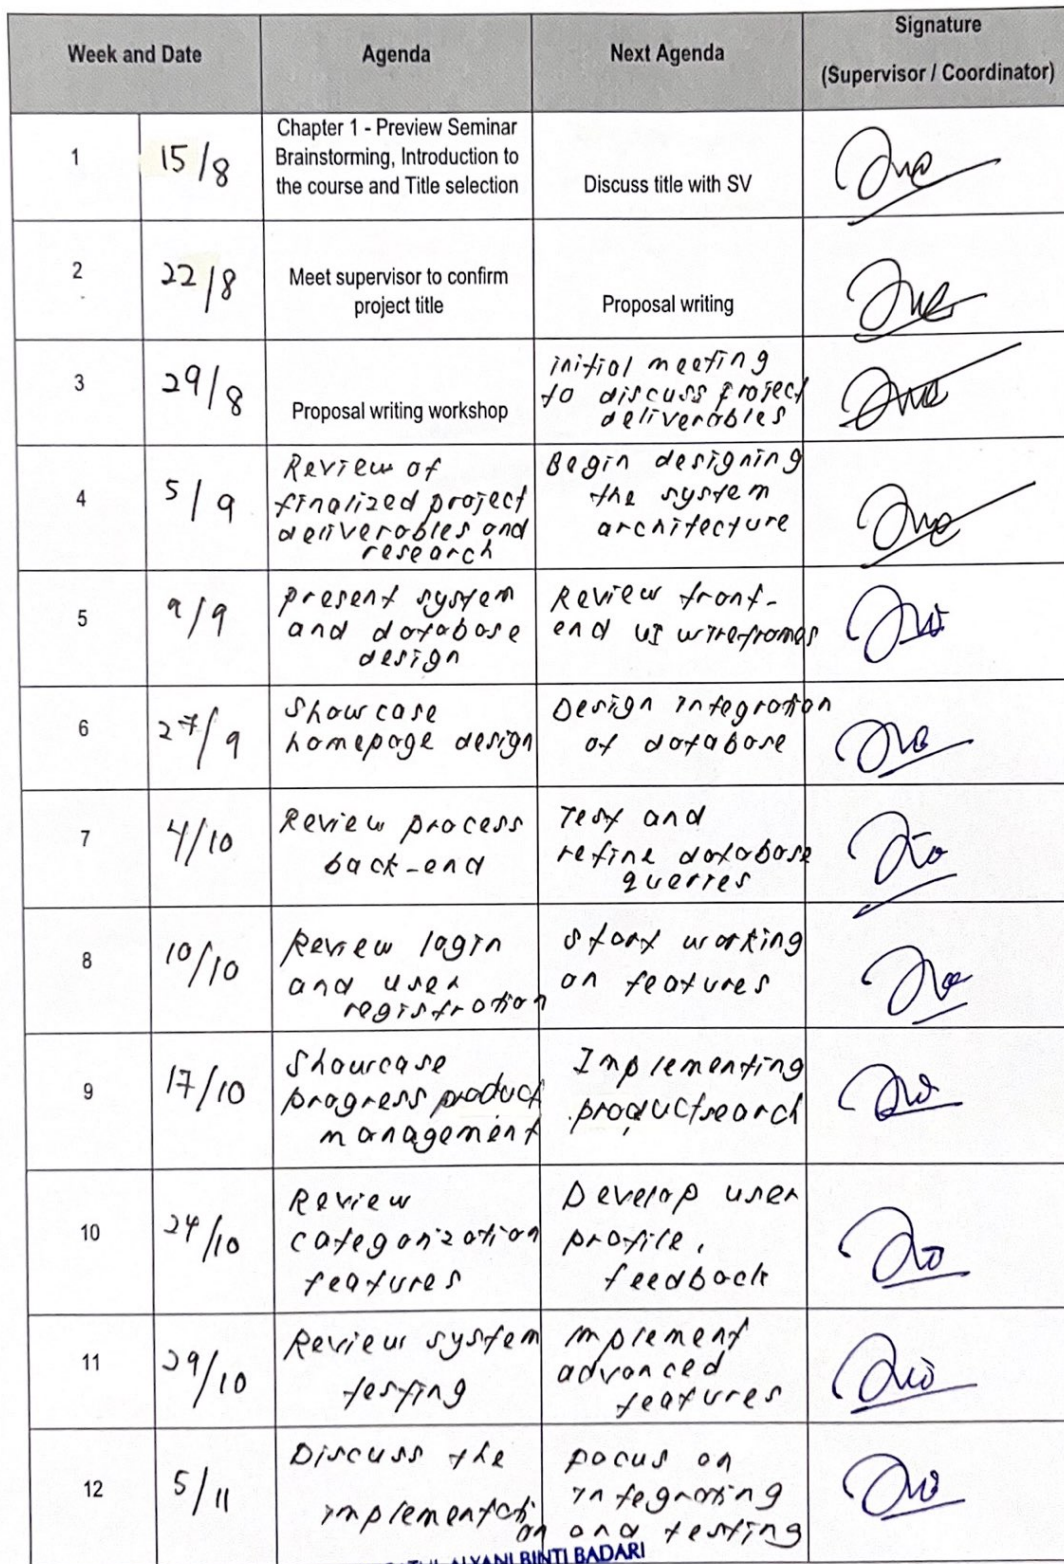 Week and Date
Agenda
Next Agenda
Signature
(Supervisor / Coordinator)
1
15/8
Chapter 1 - Preview Seminar
Brainstorming, Introduction to
the course and Title selection
Discuss title with SV
2
22/8
Meet supervisor to confirm
project title
Proposal writing
3
29/8
Proposal writing workshop
initial meeting
to discuss project
deliverables
4
5/9
Review of
finalized project
deliverables and
research
Begin designing
the system
architecture
5
9/9
present system
and database
design
Review front-
end UI wireframes
6
27/9
Showcase
homepage design
Design integration
of database
7
4/10
Review process
back-end
Test and
refine database
querries
8
10/10
Review login
and user
registration
start working
on features
9
17/10
Showcase
progress product
management
Implementing
product search
10
24/10
Review
categorization
features
Develop user
profile,
feedback
11
29/10
Review system
testing
implement
advanced
features
12
5/11
Discuss the
implementati
on
focus on
integrating
and testing
ALYANI BINTI BADARI